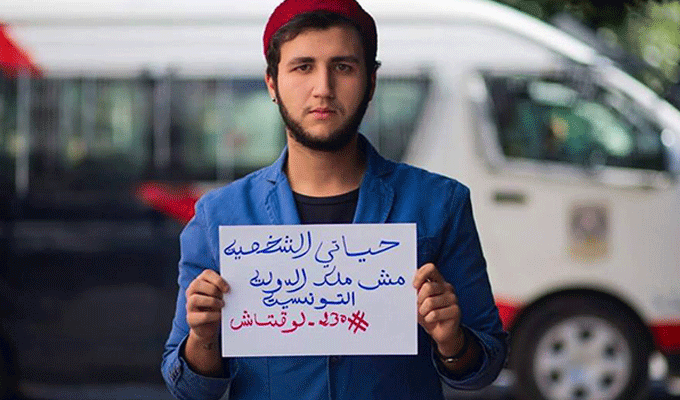 حياتي الشخصية
مش ملك الدولة
التونسية
#230_لوقتاش